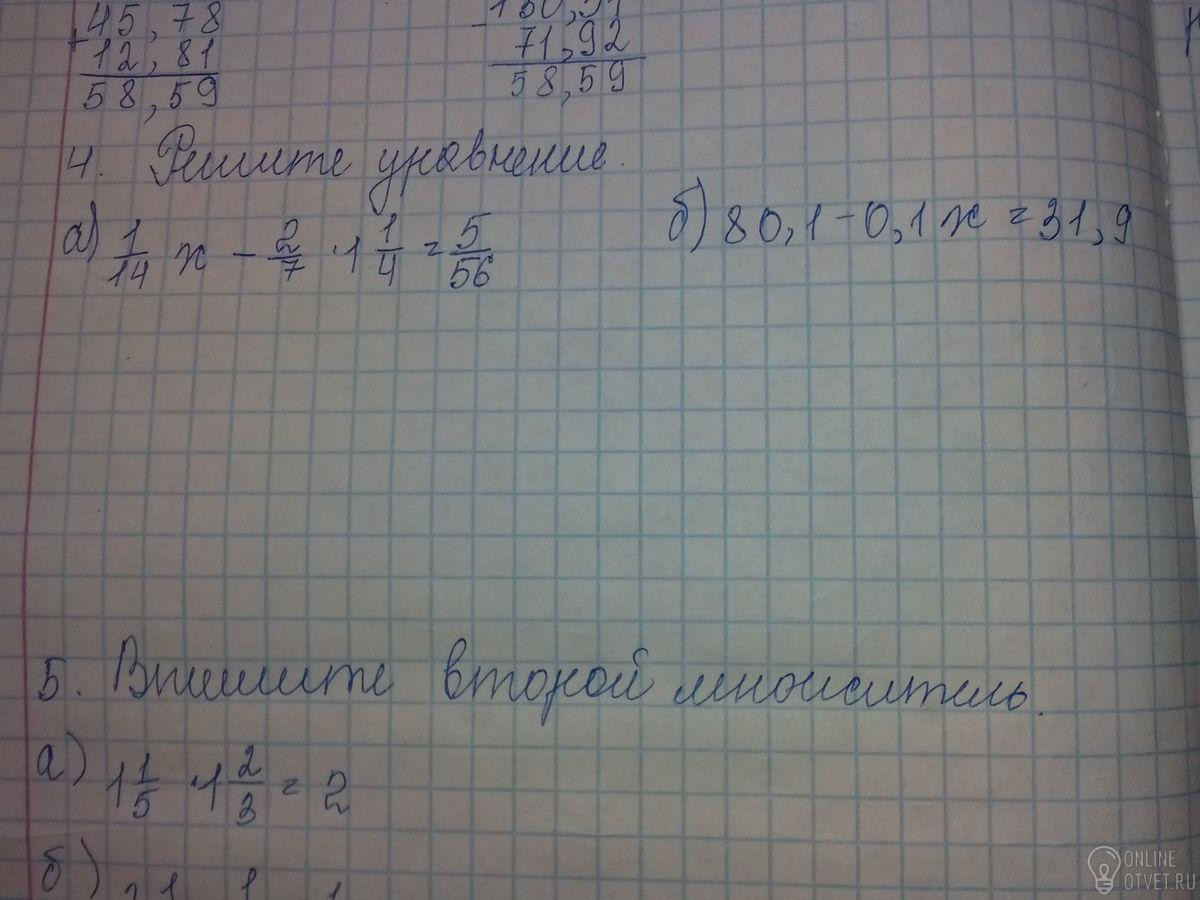 45,78
+ 12,81
58,59
71,92
58,59
4. Решите уравнение.
а) 1/14 x - 2/7 · 1 1/4 = 5/56
б) 80,1 - 0,1x = 31,9
5. Впишите второй множитель.
а) 1 1/5 · 1 2/3 = 2
б)
ONLINE
OTVET.RU